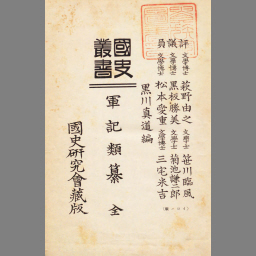 評議員
文學博士 萩野由之 文學士 笹川臨風
文學博士 黒板勝美 文學士 菊池謙二郎
文學博士 松本愛重 文學博士 三宅米吉
黒川真道編
國史叢書
軍記類纂 全
國史研究會藏版